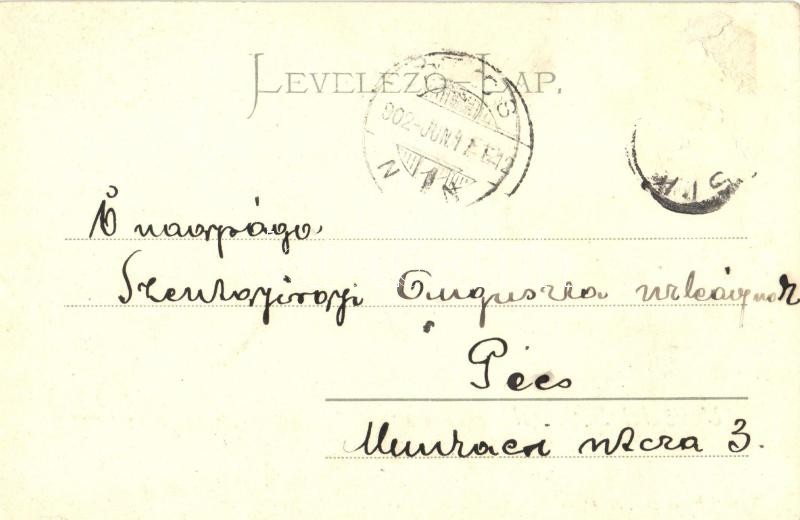 LEVELEZŐ-LAP.
PÉCS
902-JUN.1
Ő nagysága
Szentgyörgyi Auguszta urleány nak
Pécs
Munkácsi utcza 3.